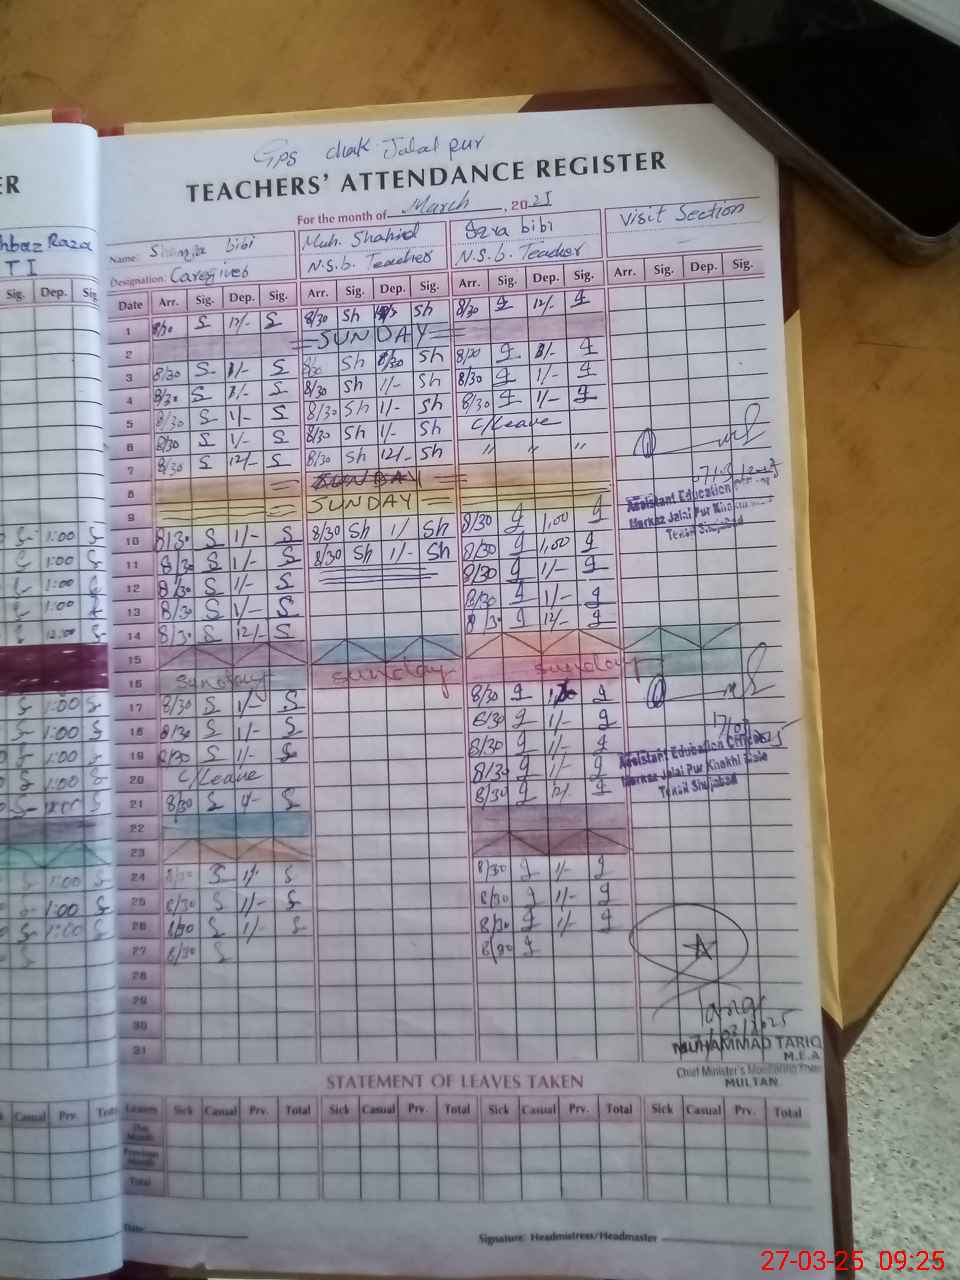 GPS chak Jalal pur
ER
TEACHERS' ATTENDANCE REGISTER
For the month of March, 2025
hbaz Raza
T I
Name: bibi
Muh. Shahid
Izra bibi
Visit Section
Designation: Caregiver
N.S.b. Teacher
N.S.b. Teacher
Sig. Dep. Sig.
Date Arr. Sig. Dep. Sig. Arr. Sig. Dep. Sig. Arr. Sig. Dep. Sig. Arr. Sig. Dep. Sig.
1 8/30 S 12/- S 8/30 Sh Sh 8/30 12/-
2 SUNDAY
3 8/30 S 1/- S 8/30 Sh 8/30 Sh 8/30 1/-
4 8/30 S 1/- S 8/30 Sh 1/- Sh 8/30 1/-
5 8/30 S 1/- S 8/30 Sh 1/- Sh 8/30 1/-
6 8/30 S 1/- S 8/30 Sh 1/- Sh C/Leave
7 8/30 S 12/- S 8/30 Sh 12/- Sh " " "
8 SUNDAY
9 SUNDAY
10 8/30 S 1/- S 8/30 Sh 1/ Sh 8/30 1,00
11 8/30 S 1/- S 8/30 Sh 1/- Sh 8/30 1,00
12 8/30 S 1/- S 8/30 1/-
13 8/30 S 1/- S 8/30 1/-
14 8/30 S 12/- S 8/30 12/-
15
16 sunday sunday sunday
17 8/30 S 1/- S 8/30
18 8/30 S 1/- S 8/30 1/-
19 8/30 S 1/- S 8/30 1/-
20 C/Leave 8/30 1/-
21 8/30 S 1/- S 8/30 12/-
22
23
24 8/30 S 1/- S 8/30 1/-
25 8/30 S 1/- S 8/30 1/-
26 8/30 S 1/- S 8/30 1/-
27 8/30 S 8/30
28
29
30
31
1:00
1:00
1:00
1:00
12:00
1:00
1:00
1:00
1:00
12:00
1:00
1:00
1:00
Assistant Education
Markaz Jalal Pur
Tehsil Shujabad
17/03
Assistant Education Officer
Markaz Jalal Pur Khakhi
Tehsil Shujabad
MUHAMMAD TARIQ
M.E.A
Chief Minister's Monitoring
MULTAN
STATEMENT OF LEAVES TAKEN
Casual Prv. Leaves Sick Casual Prv. Total Sick Casual Prv. Total Sick Casual Prv. Total Sick Casual Prv. Total
This Month
Previous Month
Total
Date:
Signature: Headmistress/Headmaster
27-03-25 09:25